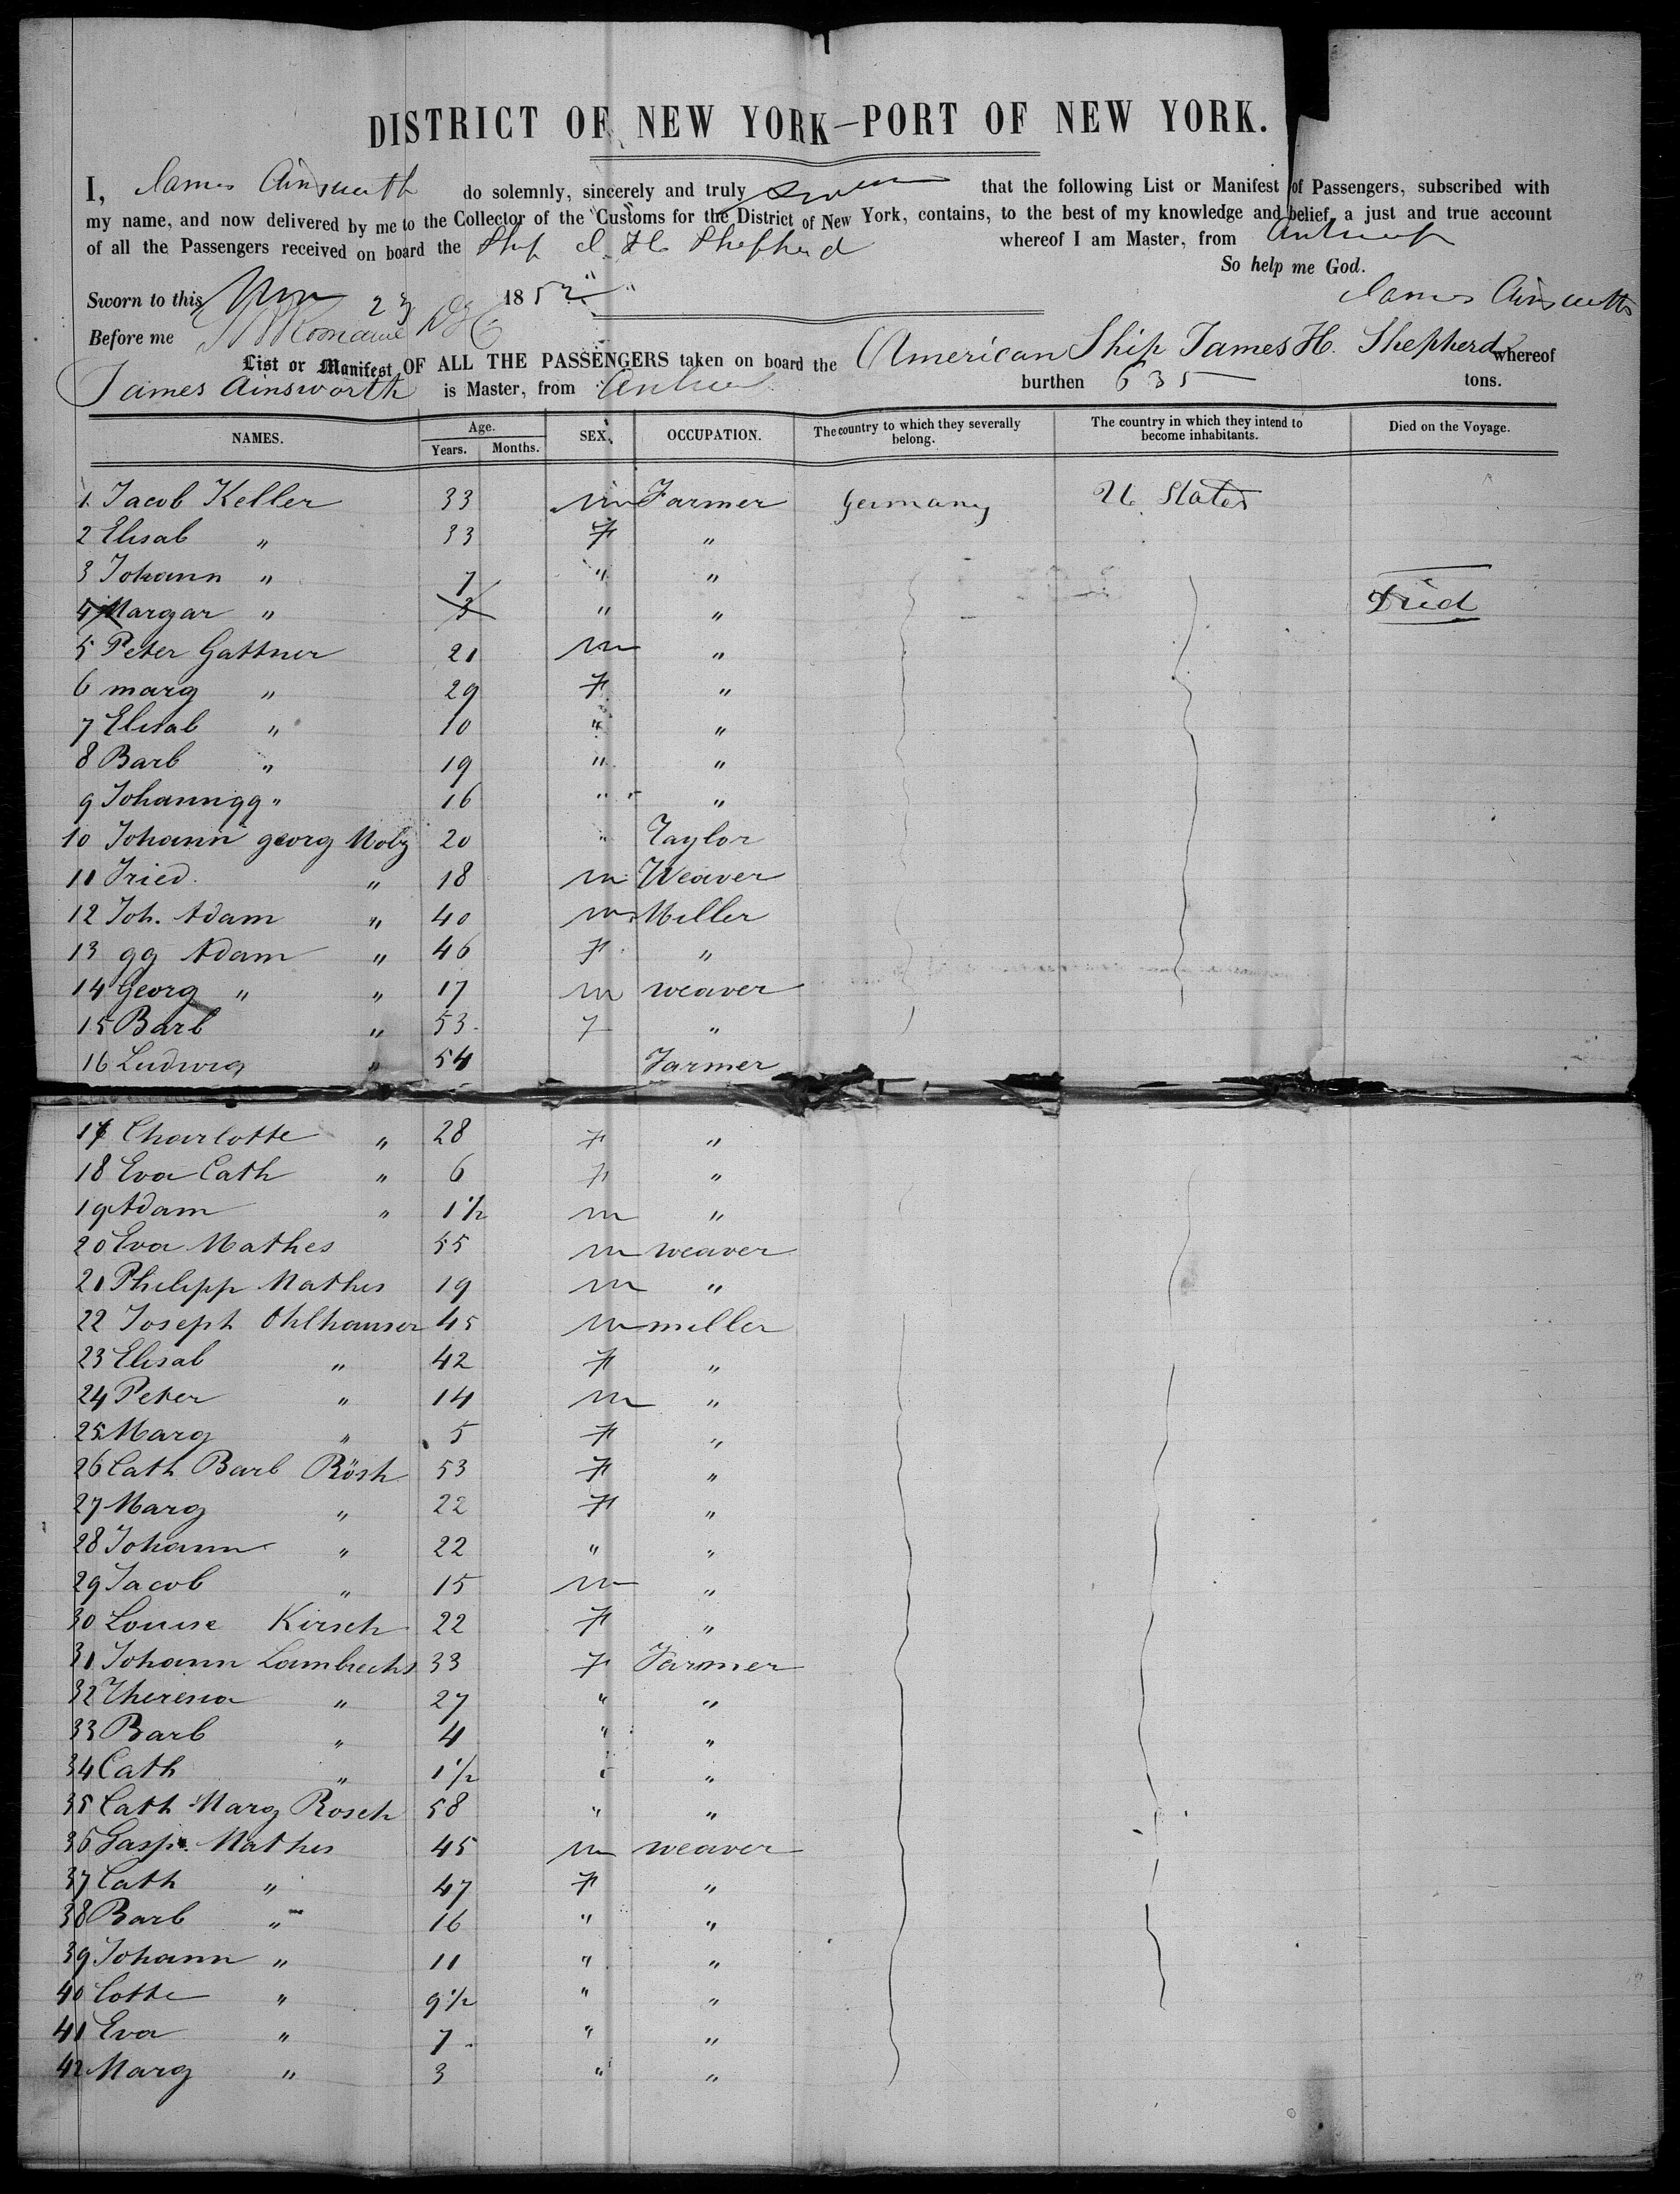 DISTRICT OF NEW YORK—PORT OF NEW YORK.
I, James Ainsworth do solemnly, sincerely and truly swear that the following List or Manifest of Passengers, subscribed with
my name, and now delivered by me to the Collector of the Customs for the District of New York, contains, to the best of my knowledge and belief, a just and true account
of all the Passengers received on board the Ship J. H. Shepherd whereof I am Master, from Antwerp
So help me God.
Sworn to this Nov 23 1852 James Ainsworth
Before me
List or Manifest OF ALL THE PASSENGERS taken on board the American Ship James H. Shepherd whereof
James Ainsworth is Master, from Antwerp burthen 635 tons.
NAMES. Age. Years. Months. SEX. OCCUPATION. The country to which they severally belong. The country in which they intend to become inhabitants. Died on the Voyage.
1 Jacob Keller 33 m Farmer Germany U. States
2 Elisab " 33 F "
3 Johann " 7 " "
4 Margar " 3 " " Died
5 Peter Gattner 21 m "
6 marg " 29 F "
7 Elisab " 10 " "
8 Barb " 19 " "
9 Johanngg " 16 " "
10 Johann georg 20 " Taylor
11 Fried. " 18 m Weaver
12 Joh. Adam " 40 m Miller
13 gg Adam " 46 F "
14 Georg " " 17 m weaver
15 Barb " 53 F "
16 Ludwig " 54 Farmer
17 Charlotte " 28 F "
18 Eva Cath " 6 F "
19 Adam " 1 1/2 m "
20 Eva Mathes 55 m weaver
21 Philipp Mathes 19 m "
22 Joseph Ohlhauser 45 m miller
23 Elisab " 42 F "
24 Peter " 14 m "
25 Marg " 5 F "
26 Cath Barb Rösh 53 F "
27 Marg " 22 F "
28 Johann " 22 " "
29 Jacob " 15 m "
30 Louise Kirsch 22 F "
31 Johann Lambrechs 33 F Farmer
32 Theresia " 27 " "
33 Barb " 4 " "
34 Cath " 1 1/2 " "
35 Cath Marg Rosch 58 " "
36 Gasp. Mathes 45 m weaver
37 Cath " 47 F "
38 Barb " 16 " "
39 Johann " 11 " "
40 Lotte " 9 1/2 " "
41 Eva " 7 " "
42 Marg " 3 " "